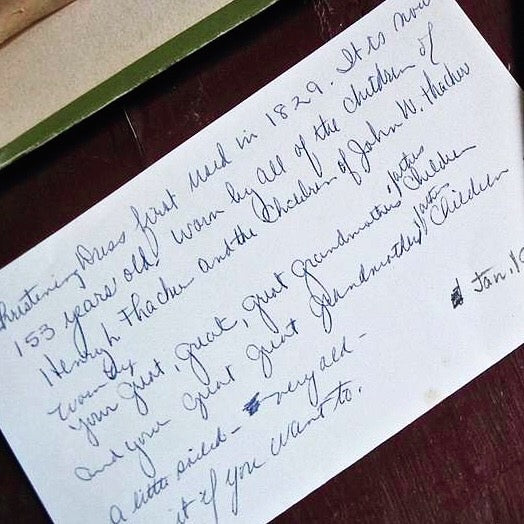 Christening Dress first used in 1829. It is now
153 years old. Worn by all of the children of
Henry L Thacker and the Children of John W. Thacker
Worn by
your great, great, great grandmothers & fathers Children
and your great great grandmothers & fathers Children
a little soiled - very old -
it if you want to.
Jan.